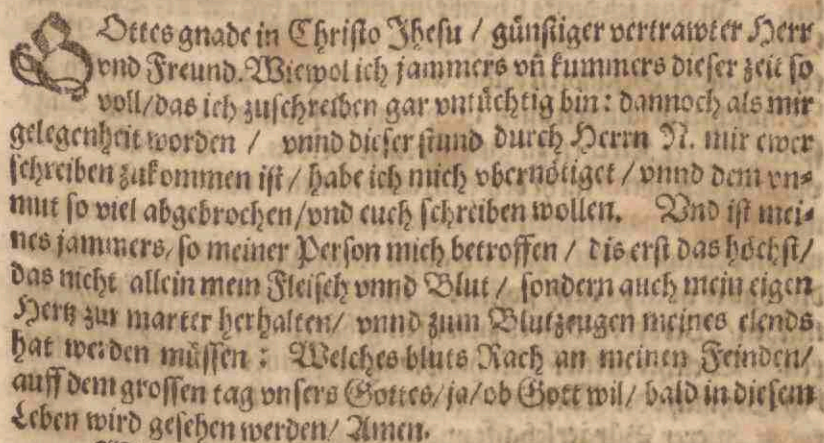 GOttes gnade in Christo Jhesu / günstiger vertrawter Herr
vnd Freund. Wiewol ich jammers vñ kummers dieser zeit so
voll/das ich zuschreiben gar vntüchtig bin: dannoch als mir
gelegenheit worden / vnnd dieser stund durch Herrn N. mir ewer
schreiben zukommen ist / habe ich mich vbernötiget / vnnd dem vn⸗
mut so viel abgebrochen/vnd euch schreiben wollen. Vnd ist mei⸗
nes jammers/so meiner Person mich betroffen / dis erst das höchst/
das nicht allein mein Fleisch vnnd Blut / sondern auch mein eigen
Hertz zur marter herhalten/ vnnd zum Blutzeugen meines elends
hat werden müssen : Welches bluts Rach an meinen Feinden/
auff dem grossen tag vnsers Gottes/ja/ob Gott wil/ bald in diesem
Leben wird gesehen werden/ Amen.